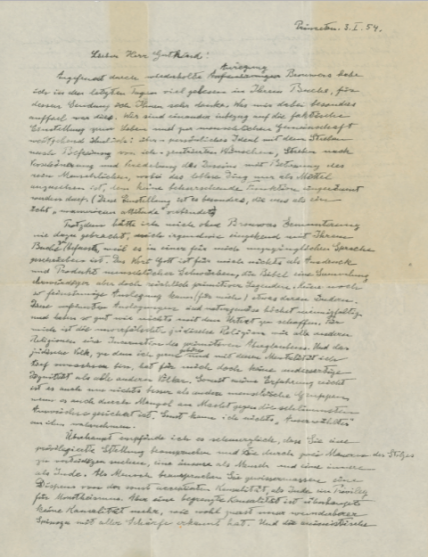 Princeton. 3. I. 54.
Lieber Herr Gutkind!
Angefeuert durch wiederholte Anregung Brouwers habe
ich in den letzten Tagen viel gelesen in Ihrem Buche, für
dessen Sendung ich Ihnen sehr danke. Was mir dabei besonders
auffiel war dies. Wir sind einander inbezug auf die faktische
Einstellung zum Leben und zur menschlichen Gemeinschaft
weitgehend ähnlich:
nach Befreiung von ich-zentrierten Wünschen, Streben nach
Verschönerung und Veredelung des Daseins mit Betonung des
rein Menschlichen, wobei das leblose Ding nur als Mittel
anzusehen ist, dem keine beherrschende Funktion eingeräumt
werden darf. (Diese Einstellung ist es besonders, die uns als ein
echt "unamerican attitude" verbindet)
Trotzdem hätte ich mich ohne Brouwers Ermunterung
nie dazu gebracht, mich irgendwie eingehend mit Ihrem
Buch zu befassen, weil es in einer für mich unzugänglichen Sprache
geschrieben ist. Das Wort Gott ist für mich nichts als Ausdruck
und Produkt menschlicher Schwächen, die Bibel eine Sammlung
ehrwürdiger aber doch reichlich primitiver Legenden. Keine noch
so feinsinnige Auslegung kann (für mich) etwas daran ändern.
Diese verfeinerten Auslegungen sind naturgemäss höchst mannigfaltig
und haben so gut wie nichts mit dem Urtext zu schaffen. Für
mich ist die unverfälschte jüdische Religion wie alle anderen
Religionen eine Incarnation des primitiven Aberglaubens. Und das
jüdische Volk, zu dem ich gerne gehöre und mit dessen Mentalität ich
tief verwachsen bin, hat für mich doch keine andersartige
Dignität als alle anderen Völker. Soweit meine Erfahrung reicht
ist es auch um nichts besser als andere menschliche Gruppen
wenn es auch durch Mangel an Macht gegen die schlimmsten
Auswüchse gesichert ist. Sonst kann ich nichts "Auserwähltes"
an ihm wahrnehmen.
Überhaupt empfinde ich es schmerzlich, dass Sie eine
privilegierte Stellung beanspruchen und sie durch zwei Mauern des Stolzes
zu verteidigen suchen, eine äussere als Mensch und eine innere
als Jude. Als Mensch beanspruchen Sie gewissermassen einen
Dispens von der sonst acceptierten Kausalität, als Jude ein Privileg
für Monotheismus. Aber eine begrenzte Kausalität ist überhaupt
keine Kausalität mehr, wie wohl zuerst unser wunderbarer
Spinoza mit aller Schärfe erkannt hat. Und die animistische